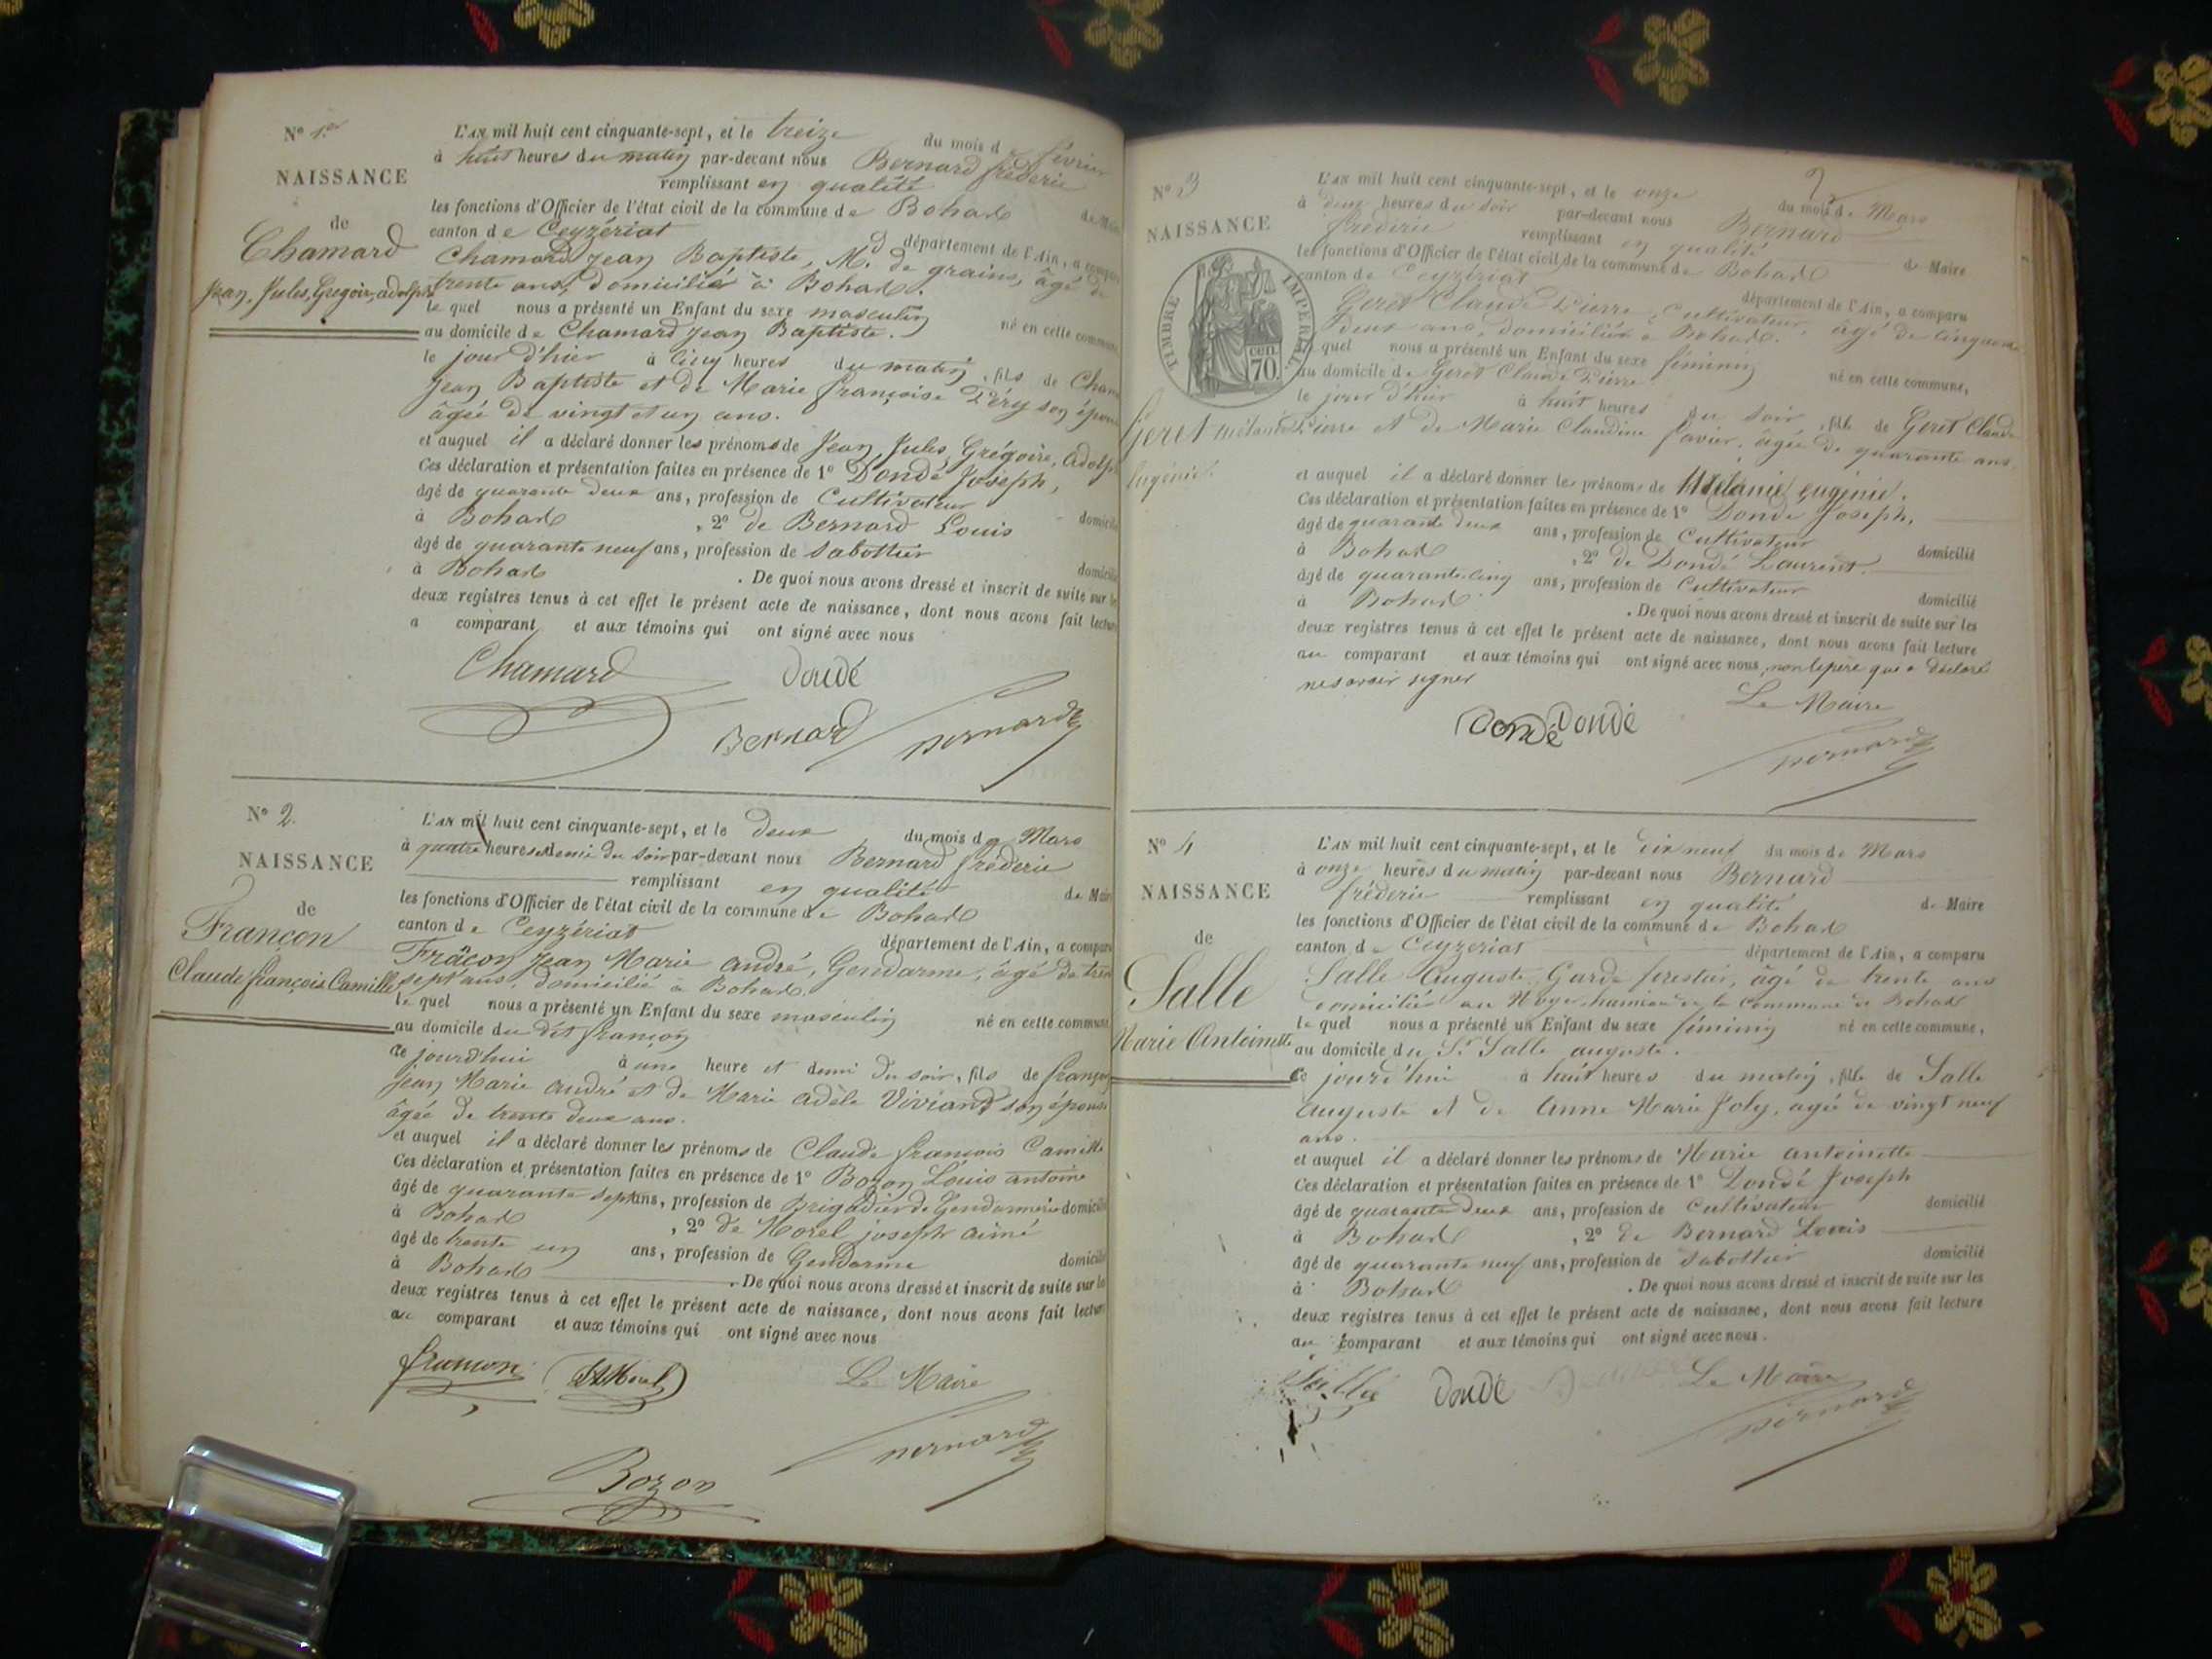 N° 1er
NAISSANCE
de
Chamard
Jean, Jules, Gregoire, adolphe
L'AN mil huit cent cinquante-sept, et le treize du mois de février
à huit heures du matin par-devant nous Bernard fréderic
remplissant en qualité de Maire
les fonctions d'Officier de l'état civil de la commune de Bohas
canton de Ceyzériat département de l'Ain, a comparu
Chamard Jean Baptiste, M.d de grains, âgé de
trente ans, domicilié à Bohas.
le quel nous a présenté un Enfant du sexe masculin né en cette commune
au domicile de Chamard Jean Baptiste.
le jour d'hier à cinq heures du matin, fils de Cham
Jean Baptiste et de Marie françoise Péry son épouse
âgée de vingt et un ans.
et auquel il a déclaré donner les prénoms de Jean, Jules, Grégoire, Adolph
Ces déclaration et présentation faites en présence de 1° Dondé Joseph,
âgé de quarante deux ans, profession de Cultivateur domicilié
à Bohas , 2° de Bernard Louis
âgé de quarante neuf ans, profession de Sabottier domicilié
à Bohas . De quoi nous avons dressé et inscrit de suite sur les
deux registres tenus à cet effet le présent acte de naissance, dont nous avons fait lecture
a comparant et aux témoins qui ont signé avec nous
Chamard Dondé
Bernard Bernard
N° 2.
NAISSANCE
de
Françon
Claude françois Camille
L'AN mil huit cent cinquante-sept, et le deux du mois de Mars
à quatre heures et demie du soir par-devant nous Bernard fréderic
remplissant en qualité de Maire
les fonctions d'Officier de l'état civil de la commune de Bohas
canton de Ceyzériat département de l'Ain, a comparu
Françon Jean Marie andré, Gendarme, âgé de trente
sept ans, domicilié a Bohas.
le quel nous a présenté un Enfant du sexe masculin né en cette commune
au domicile du dit françon
ce jourd'hui à une heure et demi du soir, fils de françon
Jean Marie andré et de Marie adèle Viviand son épouse
âgée de trente deux ans.
et auquel il a déclaré donner les prénoms de Claude françois Camille
Ces déclaration et présentation faites en présence de 1° Bozon Louis antoine
âgé de quarante sept ans, profession de Brigadier de Gendarmerie domicilié
à Bohas , 2° de Morel joseph aimé
âgé de trente un ans, profession de Gendarme domicilié
à Bohas . De quoi nous avons dressé et inscrit de suite sur les
deux registres tenus à cet effet le présent acte de naissance, dont nous avons fait lecture
au comparant et aux témoins qui ont signé avec nous
françon Morel Le Maire
Bernard
Bozon
2
N° 3
NAISSANCE
TIMBRE IMPERIAL
70 CEN.
Geret mélanie
Eugénie.
L'AN mil huit cent cinquante-sept, et le onze du mois de Mars
à deux heures du soir par-devant nous Bernard
fréderic remplissant en qualité de Maire
les fonctions d'Officier de l'état civil de la commune de Bohas
canton de Ceyzériat département de l'Ain, a comparu
Geret Claude Pierre, Cultivateur, âgé de cinquante
deux ans, domicilié à Bohas.
le quel nous a présenté un Enfant du sexe féminin né en cette commune,
au domicile de Geret Claude Pierre
le jour d'hier à huit heures du soir, fille de Geret Claude
Pierre et de Marie Claudine favier, âgée de quarante ans
et auquel il a déclaré donner les prénoms de Mélanie eugénie.
Ces déclaration et présentation faites en présence de 1° Dondé Joseph,
âgé de quarante deux ans, profession de Cultivateur domicilié
à Bohas , 2° de Dondé Laurent.
âgé de quarante-cinq ans, profession de Cultivateur domicilié
à Bohas . De quoi nous avons dressé et inscrit de suite sur les
deux registres tenus à cet effet le présent acte de naissance, dont nous avons fait lecture
au comparant et aux témoins qui ont signé avec nous, non le père qui a déclaré
ne savoir signer Le Maire
Dondé Dondé
Bernard
N° 4
NAISSANCE
de
Salle
Marie Antoinette
L'AN mil huit cent cinquante-sept, et le dix neuf du mois de Mars
à onze heures du matin par-devant nous Bernard
fréderic remplissant en qualité de Maire
les fonctions d'Officier de l'état civil de la commune de Bohas
canton de Ceyzeriat département de l'Ain, a comparu
Salle Auguste, Garde forestier, âgé de trente ans
domicilié au de la commune de Bohas
le quel nous a présenté un Enfant du sexe féminin né en cette commune,
au domicile du Sr Salle auguste.
ce jourd'hui à huit heures du matin, fille de Salle
Auguste et de Anne Marie Joly, agée de vingt neuf
ans.
et auquel il a déclaré donner les prénoms de Marie antoinette
Ces déclaration et présentation faites en présence de 1° Dondé Joseph
âgé de quarante deux ans, profession de Cultivateur domicilié
à Bohas , 2° de Bernard Louis
âgé de quarante neuf ans, profession de Sabottier domicilié
à Bohas . De quoi nous avons dressé et inscrit de suite sur les
deux registres tenus à cet effet le présent acte de naissance, dont nous avons fait lecture
au comparant et aux témoins qui ont signé avec nous.
Salle Dondé Le Maire
Bernard